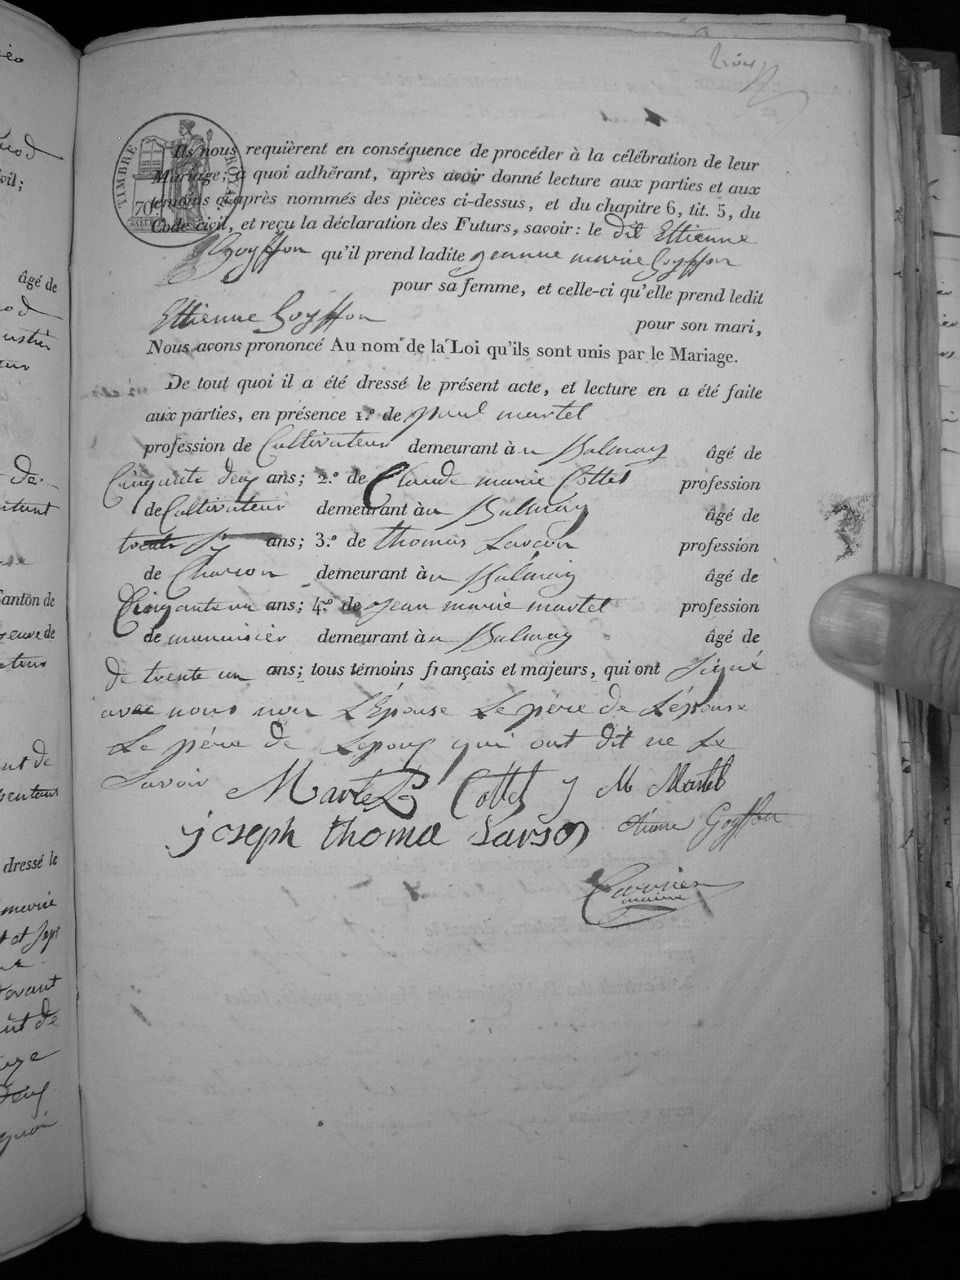 trois
TIMBRE ROYAL
70
Ils nous requièrent en conséquence de procéder à la célébration de leur
Mariage; à quoi adhérant, après avoir donné lecture aux parties et aux
témoins ci-après nommés des pièces ci-dessus, et du chapitre 6, tit. 5, du
Code civil, et reçu la déclaration des Futurs, savoir: le dit Ettienne
Goyffon qu'il prend ladite jeanne marie Goyffon
pour sa femme, et celle-ci qu'elle prend ledit
Ettienne Goyffon pour son mari,
Nous avons prononcé Au nom de la Loi qu'ils sont unis par le Mariage.
De tout quoi il a été dressé le présent acte, et lecture en a été faite
aux parties, en présence 1.º de paul martel
profession de Cultivateur demeurant à Balmay âgé de
Cinquante deux ans; 2.º de Claude marie Cottet profession
de Cultivateur demeurant à Balmay âgé de
trente six ans; 3.º de thomas Savarin profession
de Charon demeurant à Balmay âgé de
Cinquante un ans; 4.º de jean marie martel profession
de menuisier demeurant à Balmay âgé de
de trente un ans; tous témoins français et majeurs, qui ont signé
avec nous non L'Épouse Le père de L'épouse
Le père de Lepoux qui ont dit ne Le
Savoir Martel Cottet J M Martel
joseph thoma Etienne Goyffon
maire
âgé de
Canton de
dressé le